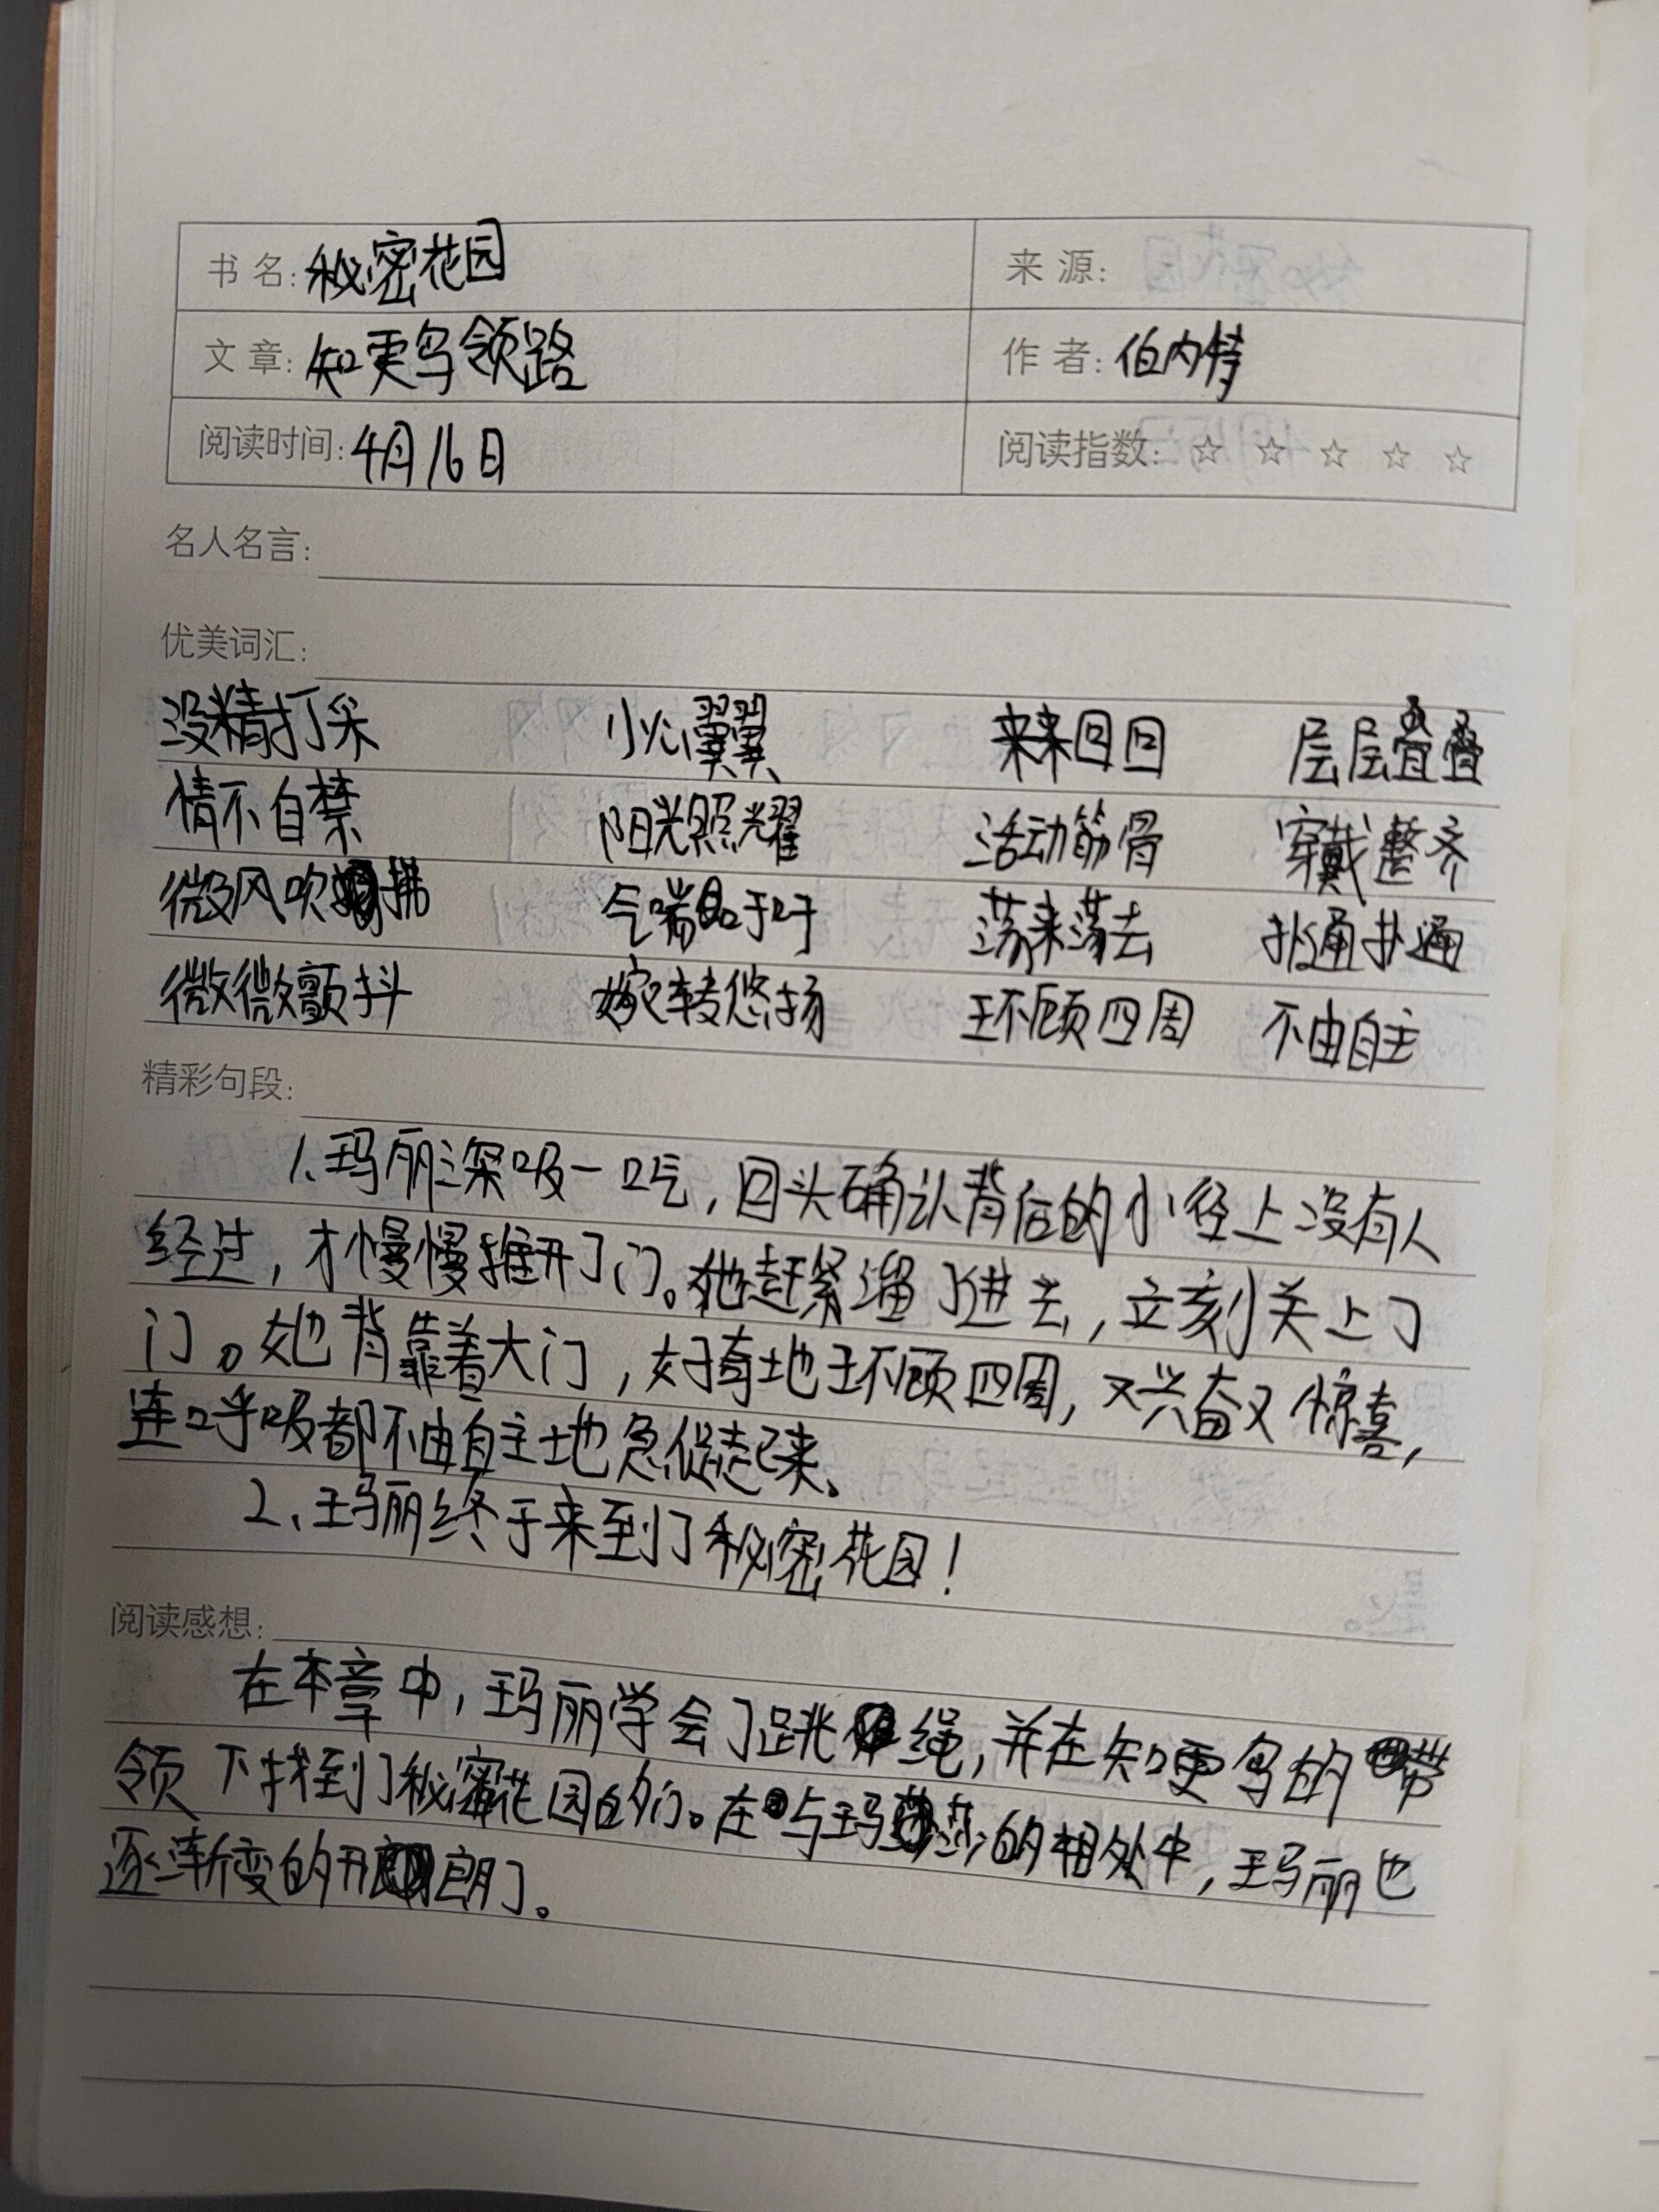 书名: 秘密花园 来源:
文章: 知更鸟领路 作者: 伯内特
阅读时间: 4月16日 阅读指数: ☆ ☆ ☆ ☆ ☆
名人名言:
优美词汇:
没精打采 小心翼翼 来来回回 层层叠叠
情不自禁 阳光照耀 活动筋骨 穿戴整齐
微风吹拂 气喘吁吁 荡来荡去 扑通扑通
微微颤抖 婉转悠扬 环顾四周 不由自主
精彩句段:
1.玛丽深吸一口气,回头确认背后的小径上没有人
经过,才慢慢推开了门。她赶紧溜了进去,立刻关上了
门。她背靠着大门,好奇地环顾四周,又兴奋又惊喜,
连呼吸都不由自主地急促起来。
2、玛丽终于来到了秘密花园!
阅读感想:
在本章中,玛丽学会了跳绳,并在知更鸟的带
领下找到了秘密花园的门。在与玛莎的相处中,玛丽也
逐渐变的开朗了。